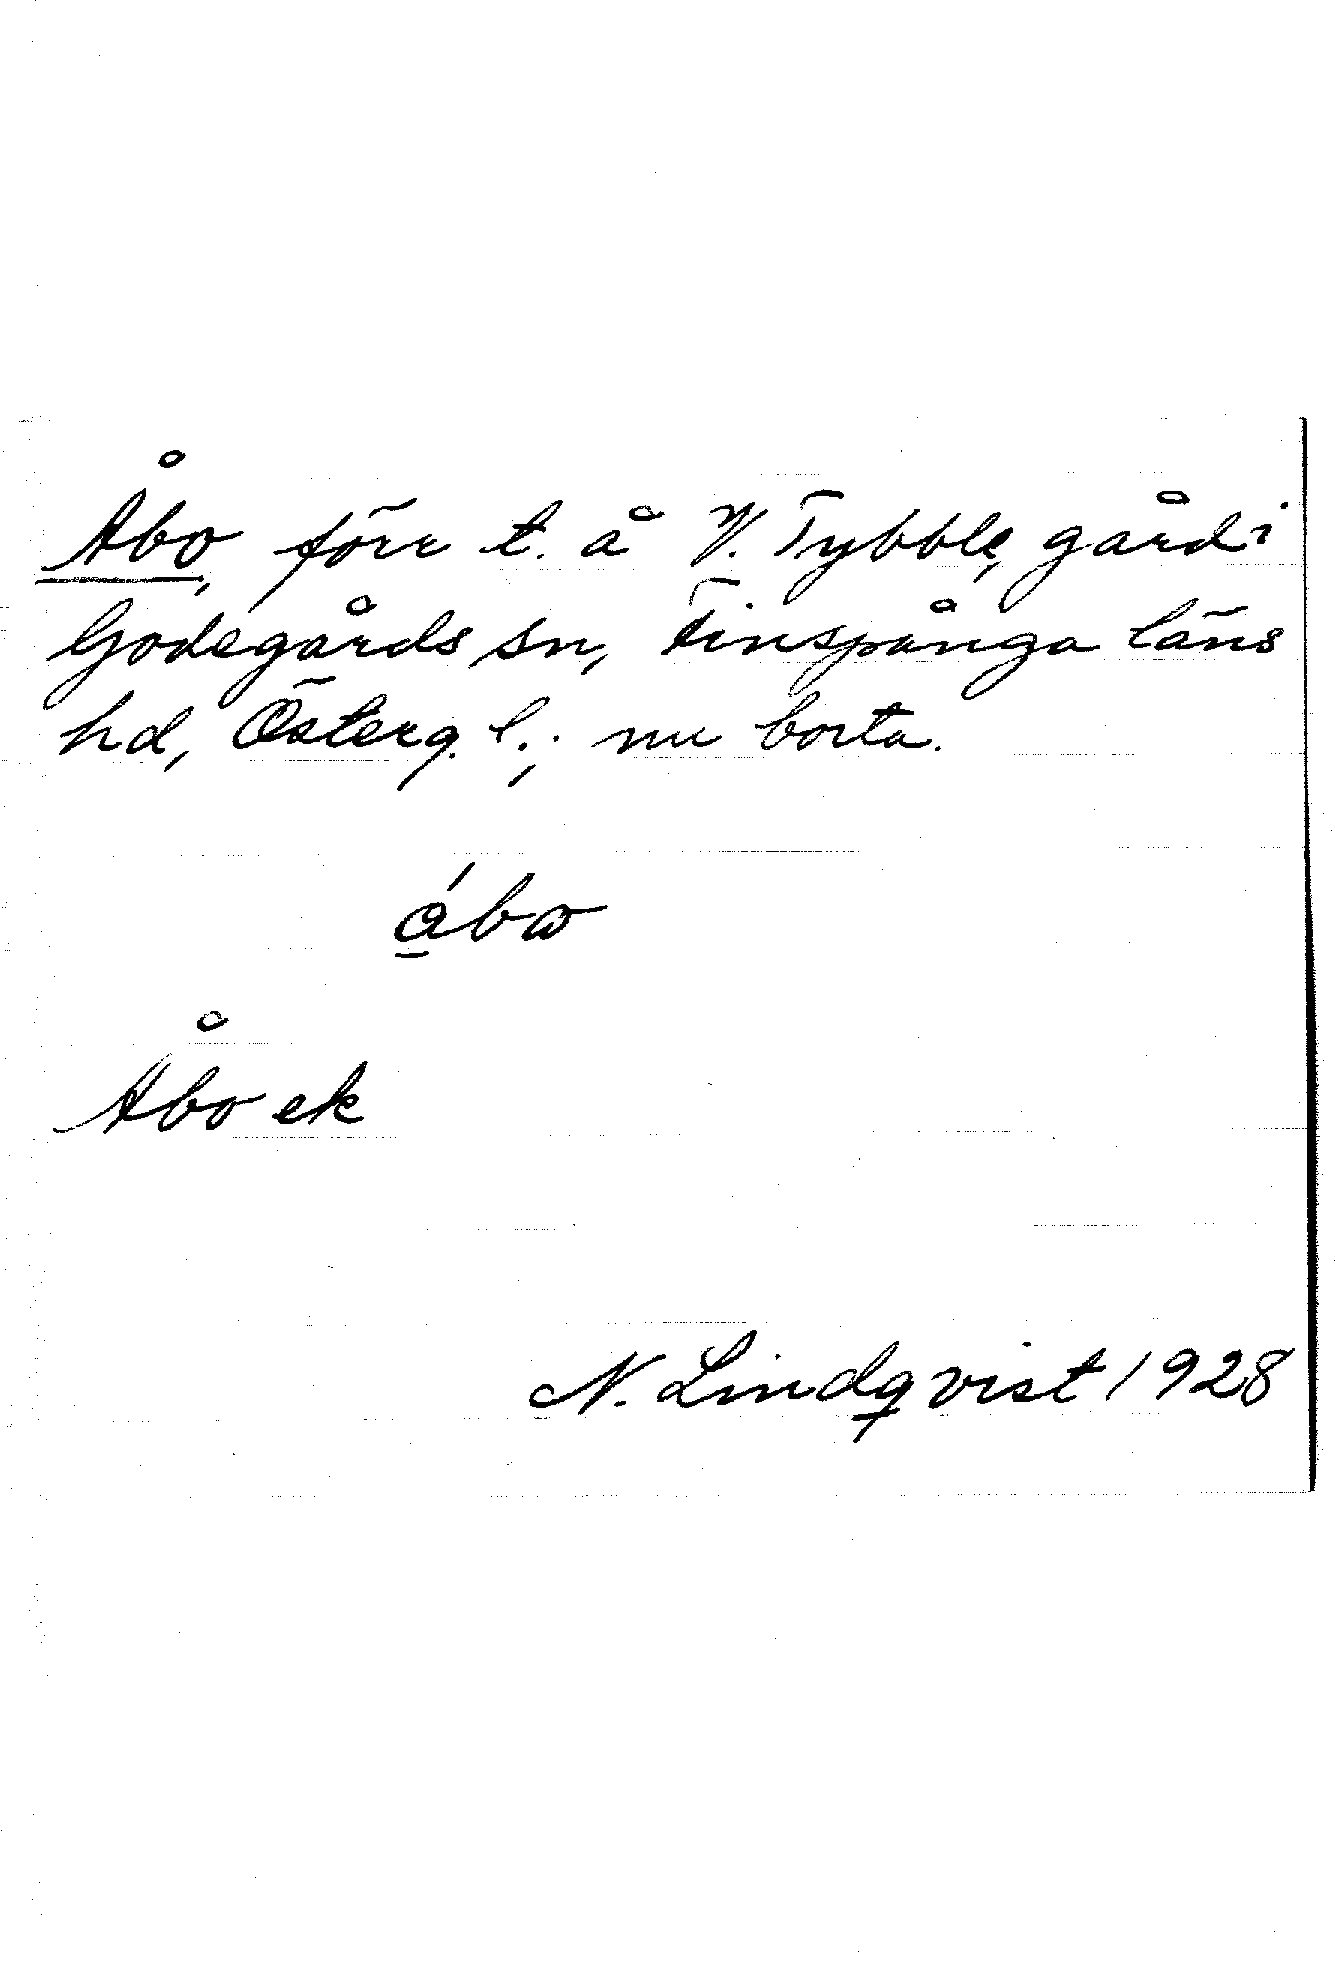 Åbo, förr t. å V. Tybble, gård i
Godegårds sn, Finspånga läns
hd, Österg. l.; nu borta.
ábω
Åbo ek
N. Lindqvist 1928